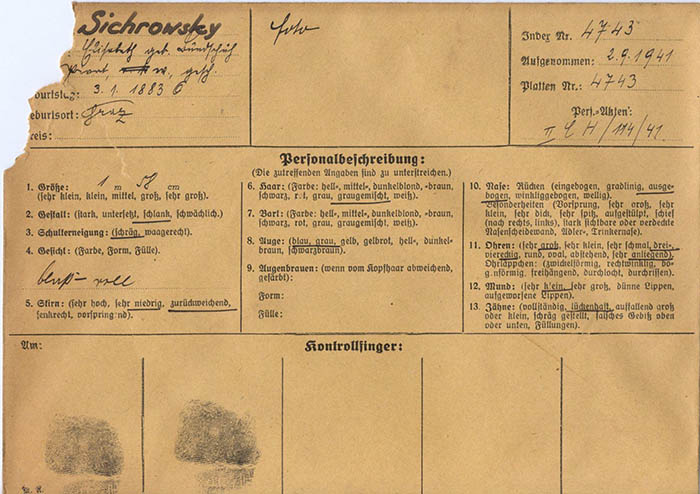 Sichrowsky
Elisabeth geb. Bundschuh
Privat, w., gesch.
burtstag: 3.1.1883
eburtsort: Graz
reis:
foto
Index Nr. 4743
Aufgenommen: 2.9.1941
Platten Nr.: 4743
Pers.-Akten:
II C H/114/41
Personalbeschreibung:
(Die zutreffenden Angaben sind zu unterstreichen.)
1. Größe: 1 m 58 cm
(sehr klein, klein, mittel, groß, sehr groß).
2. Gestalt: (stark, untersetzt, schlank, schwächlich).
3. Schulterneigung: (schräg, waagerecht).
4. Gesicht: (Farbe, Form, Fülle).
blaß – voll
5. Stirn: (sehr hoch, sehr niedrig, zurückweichend,
senkrecht, vorspringend).
6. Haar: (Farbe: hell-, mittel-, dunkelblond, -braun,
schwarz, rot, grau, graugemischt, weiß).
7. Bart: (Farbe: hell-, mittel-, dunkelblond, -braun,
schwarz, rot, grau, graugemischt, weiß).
8. Auge: (blau, grau, gelb, gelbrot, hell-, dunkel-
braun, schwarzbraun).
9. Augenbrauen: (wenn vom Kopfhaar abweichend,
gefärbt):
Form:
Fülle:
10. Nase: Rücken (eingebogen, gradlinig, ausge-
bogen, winkliggebogen, wellig).
Besonderheiten (Vorsprung, sehr groß, sehr
klein, sehr dick, sehr spitz, aufgestülpt, schief
(nach rechts, links), stark sichtbare oder verdeckte
Nasenscheidewand, Adler-, Trinkernase).
11. Ohren: (sehr groß, sehr klein, sehr schmal, drei-
viereckig, rund, oval, abstehend, sehr anliegend).
Ohrläppchen: (zwickelförmig, rechtwinklig, bo-
g.nförmig, freihängend, durchlocht, durchrissen).
12. Mund: (sehr klein, sehr groß, dünne Lippen,
aufgeworfene Lippen).
13. Zähne: (vollständig, lückenhaft, auffallend groß
oder klein, schräg gestellt, falsches Gebiß oben
oder unten, Füllungen).
Am:
Kontrollfinger: